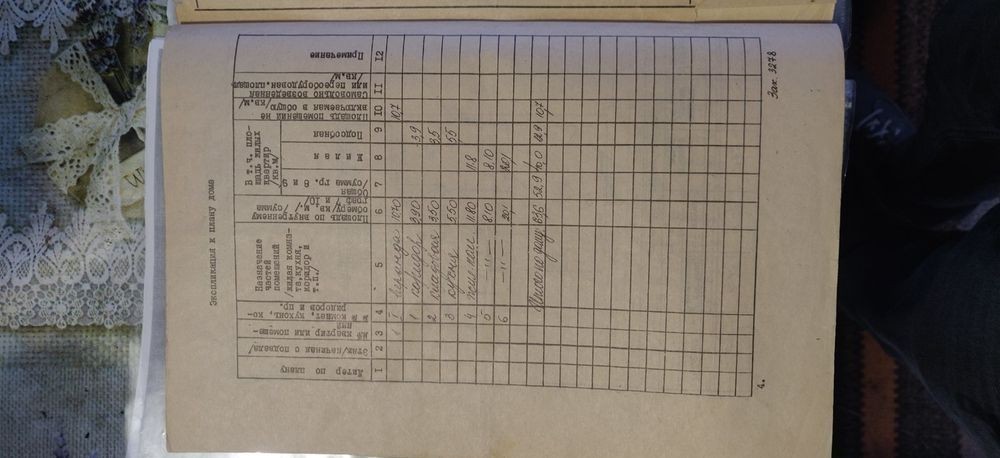 Экспликация к плану дома
Литер по плану
Этаж/начиная с подвала/
№№ квартир или помеще-
ний
№ № комнат, кухонь, ко-
ридоров и пр.
Назначение
частей
помещений
/жилая комна-
та,кухня,
коридор и
т.п./
Площадь по внутреннему
обмеру кв. м./ /сумма
граф 7 и 10/
В т.ч. пло-
щадь жилых
квартир
/кв.м/
Общая
/сумма гр. 8 и 9
Жилая
Подсобная
Площадь помещений не
включаемая в общую /кв.м/
Самовольно возведенная
или переоборудован.площадь
/кв.м/
Примечание
1 2 3 4 5 6 7 8 9 10 11 12
1 I веранда 10.70 10,7
1 коридор 3.90 3,9
2 кладовая 3.50 3,5
3 кухня 5.50 5,5
4 11.80 11.8
5 —"— 8.10 8.10
6 —"— 20.1 20.1
63,6 52.9 40,0 12.9 10,7
4.
Зак. 3278